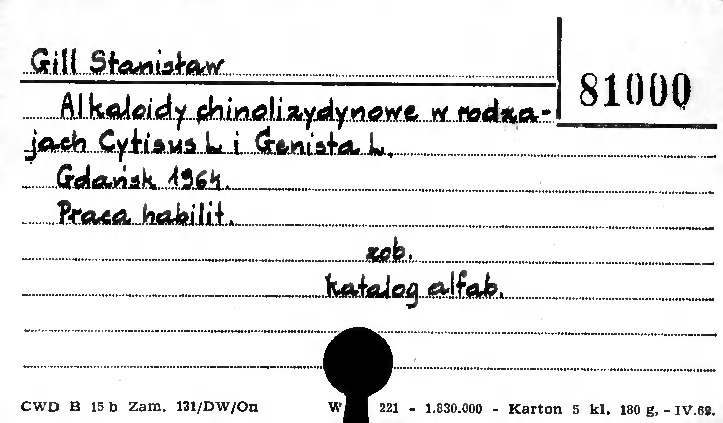 Gill Stanisław
81000
Alkaloidy chinolizydynowe w rodza-
jach Cytisus L i Genista L.
Gdańsk 1964.
Praca habilit.
zob.
katalog alfab.
CWD B 15 b Zam. 131/DW/On W 221 - 1.830.000 - Karton 5 kl. 180 g. - IV.69.